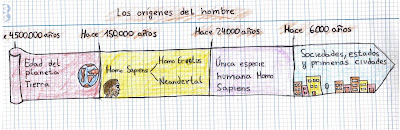 Los orígenes del hombre
4500000 años
Hace 150,000 años
Hace 24000 años
Hace 6000 años
Edad del
planeta
Tierra
Homo Sapiens
Homo Ergetus
Neandertal
Única especie
humana Homo
Sapiens
Sociedades, estados
y primeras ciudades